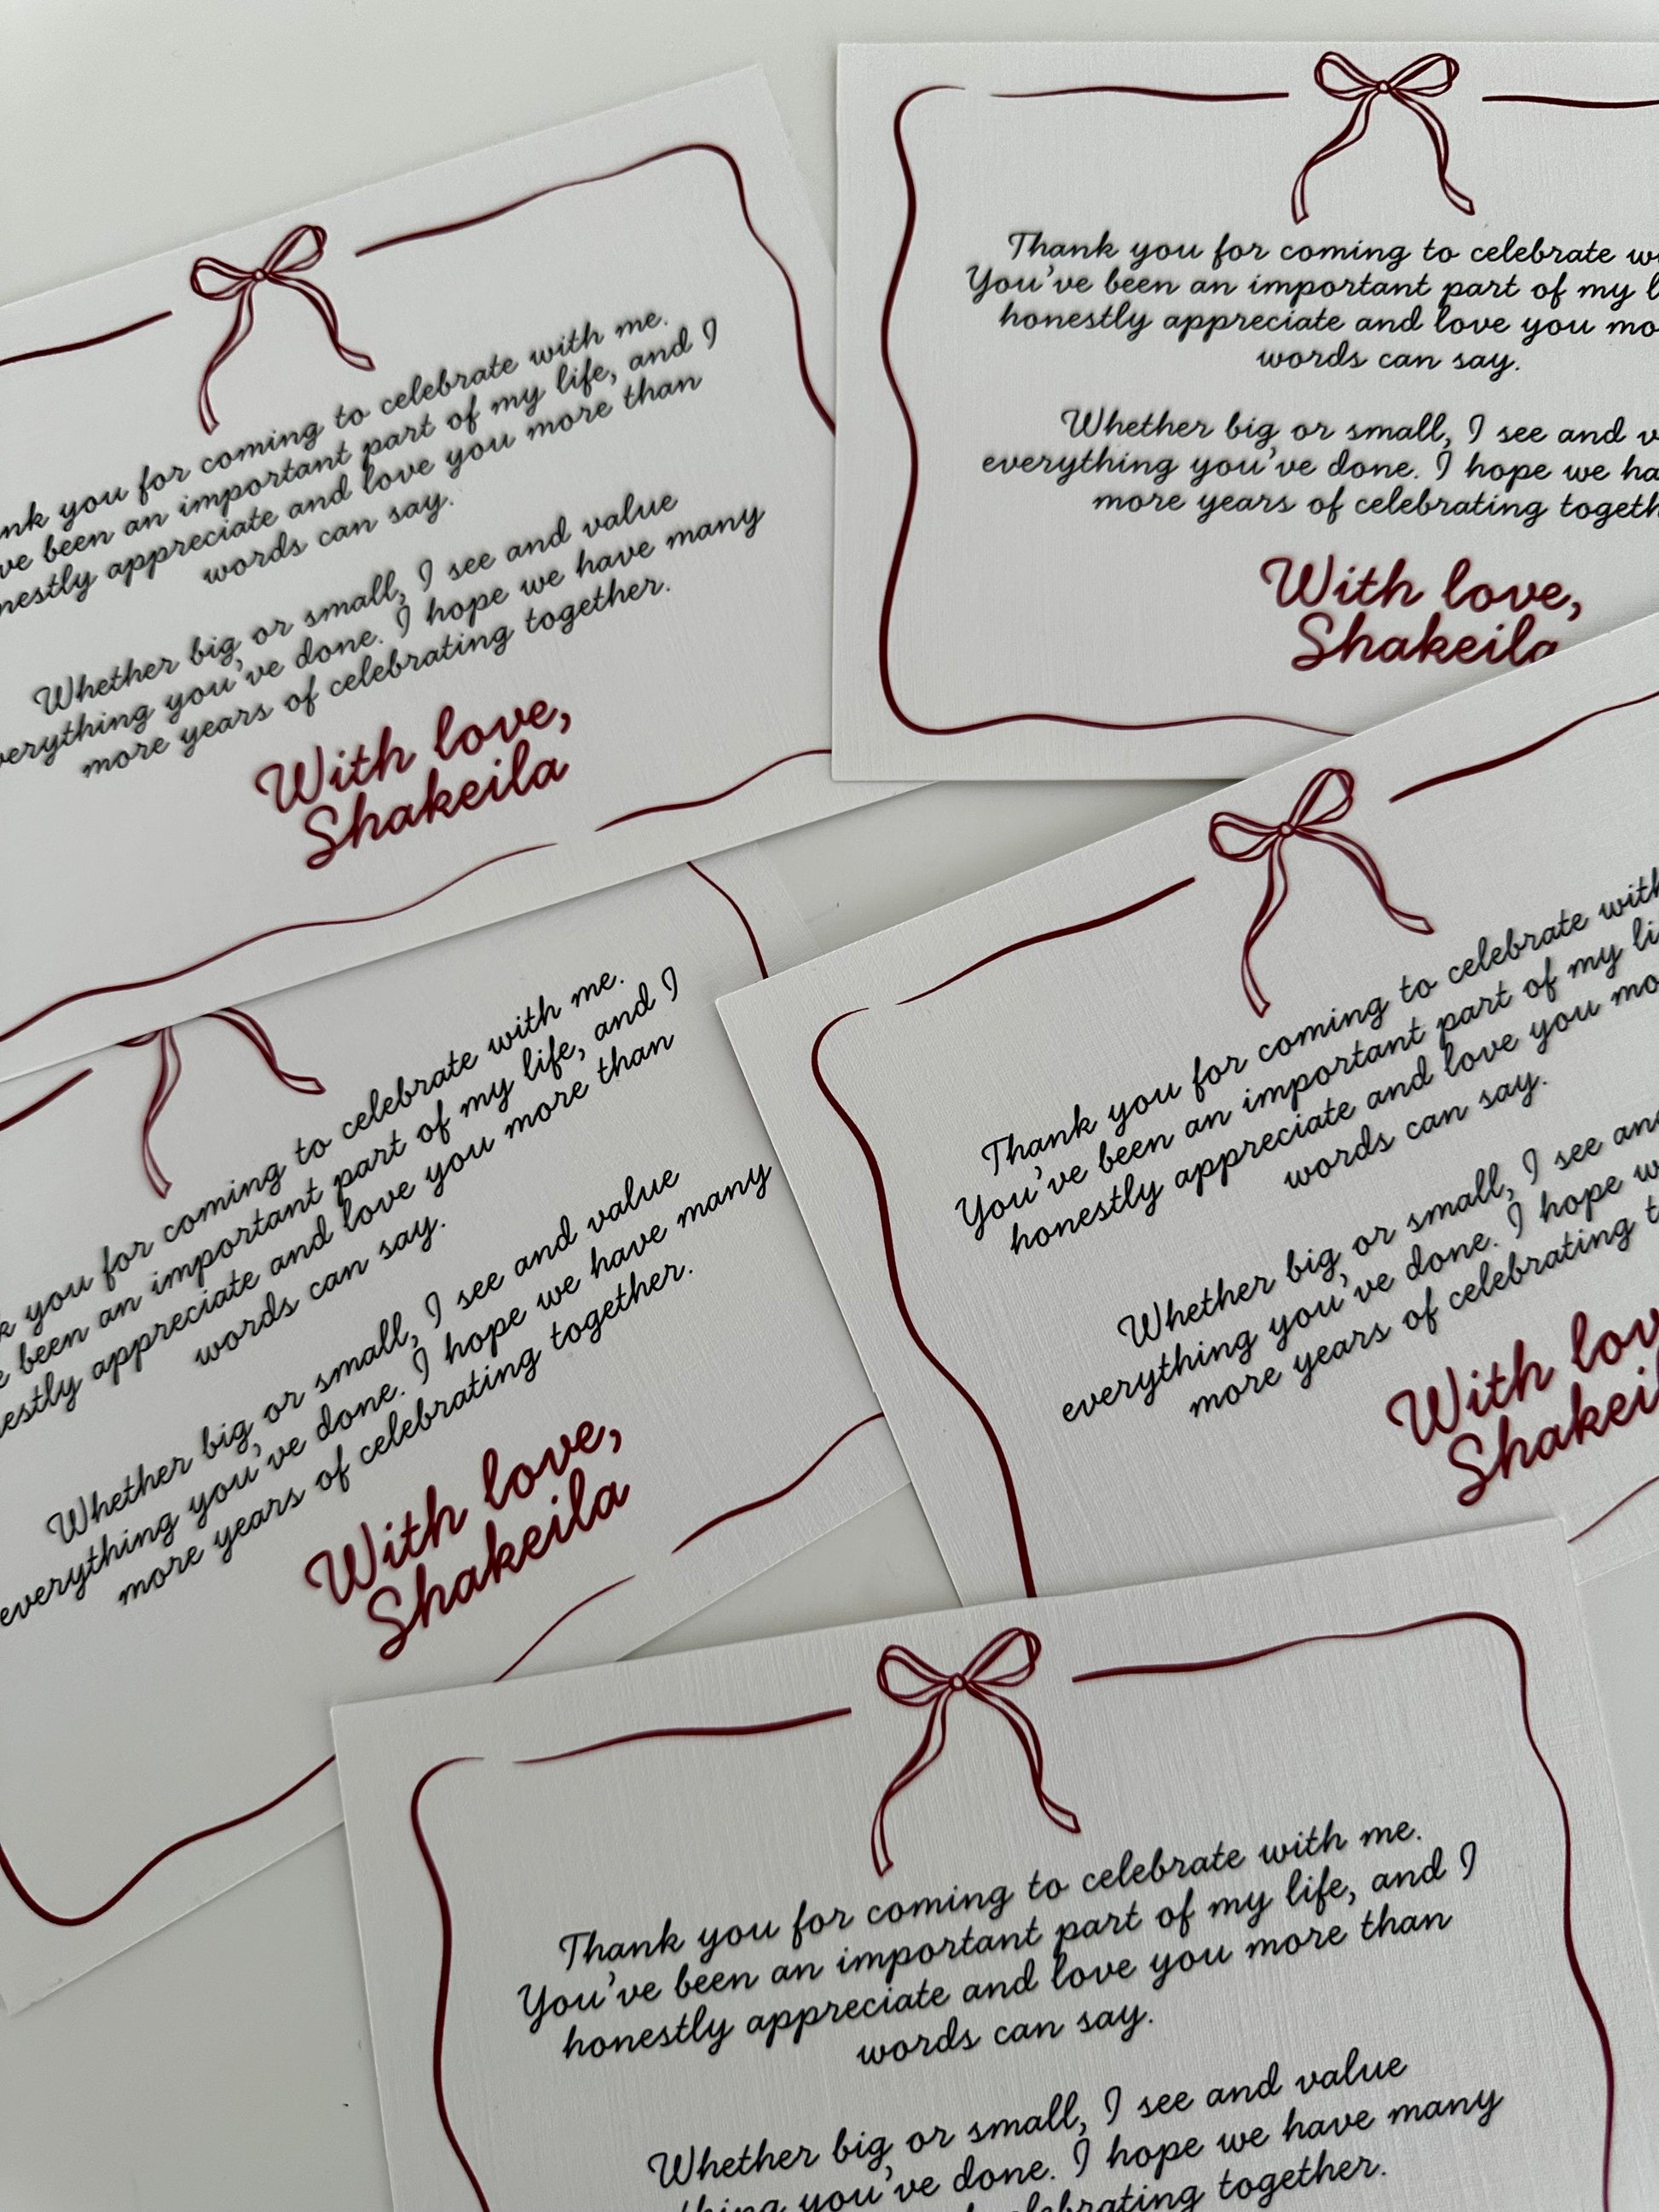 you for coming to celebrate with me.
been an important part of my life, and I
appreciate and love you more than
words can say.
Whether big or small, I see and value
you've done. I hope we have many
more years of celebrating together.
With love,
Shakeila
Thank you for coming to celebrate
You've been an important part of my
honestly appreciate and love you
words can say.
Whether big or small, I see and
everything you've done. I hope we
more years of celebrating
With love,
Shakeila
you for coming to celebrate with me.
been an important part of my life, and I
appreciate and love you more than
words can say.
Whether big or small, I see and value
everything you've done. I hope we have many
more years of celebrating together.
With love,
Shakeila
Thank you for coming to celebrate
You've been an important part of my
honestly appreciate and love you
words can say.
Whether big or small, I see
everything you've done. I hope
more years of celebrating
With
Thank you for coming to celebrate with me.
You've been an important part of my life, and I
honestly appreciate and love you more than
words can say.
Whether big or small, I see and value
you've done. I hope we have many
together.